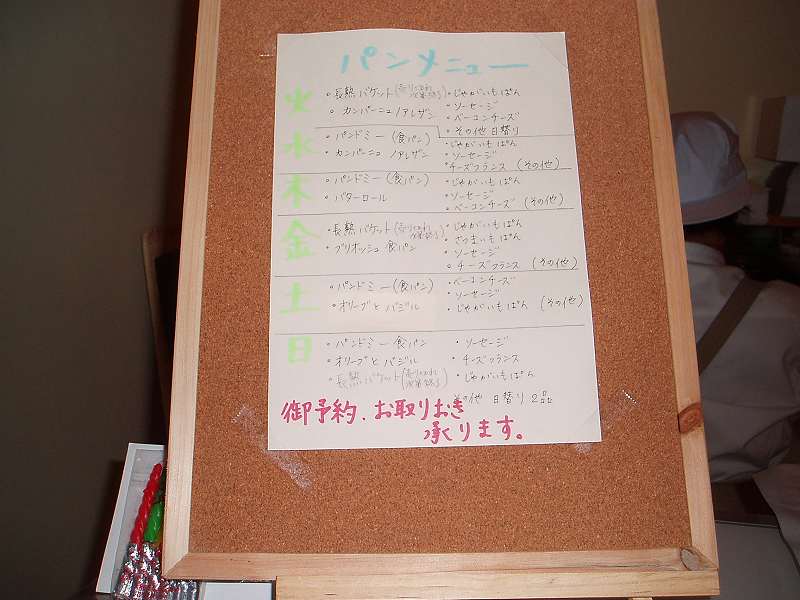 パンメニュー
火
・長熟バケット(売りきれ次第終了)
・カンパーニュ/ノアレザン
・じゃがいもぱん
・ソーセージ
・ベーコンチーズ
・その他 日替り
水
・パンドミー(食パン)
・カンパーニュ/ノアレザン
・じゃがいもぱん
・ソーセージ
・チーズフランス(その他)
木
・パンドミー(食パン)
・バターロール
・じゃがいもぱん
・ソーセージ
・ベーコンチーズ(その他)
金
・長熟バケット(売りきれ次第終了)
・ブリオッシュ食パン
・じゃがいもぱん
・さつまいもぱん
・ソーセージ
・チーズフランス(その他)
土
・パンドミー(食パン)
・オリーブとバジル
・ベーコンチーズ
・ソーセージ
・じゃがいもぱん(その他)
日
・パンドミー食パン
・オリーブとバジル
・長熟バケット(売りきれ次第終了)
・ソーセージ
・チーズフランス
・じゃがいもぱん
その他 日替り 2品
御予約、お取りおき
承ります。